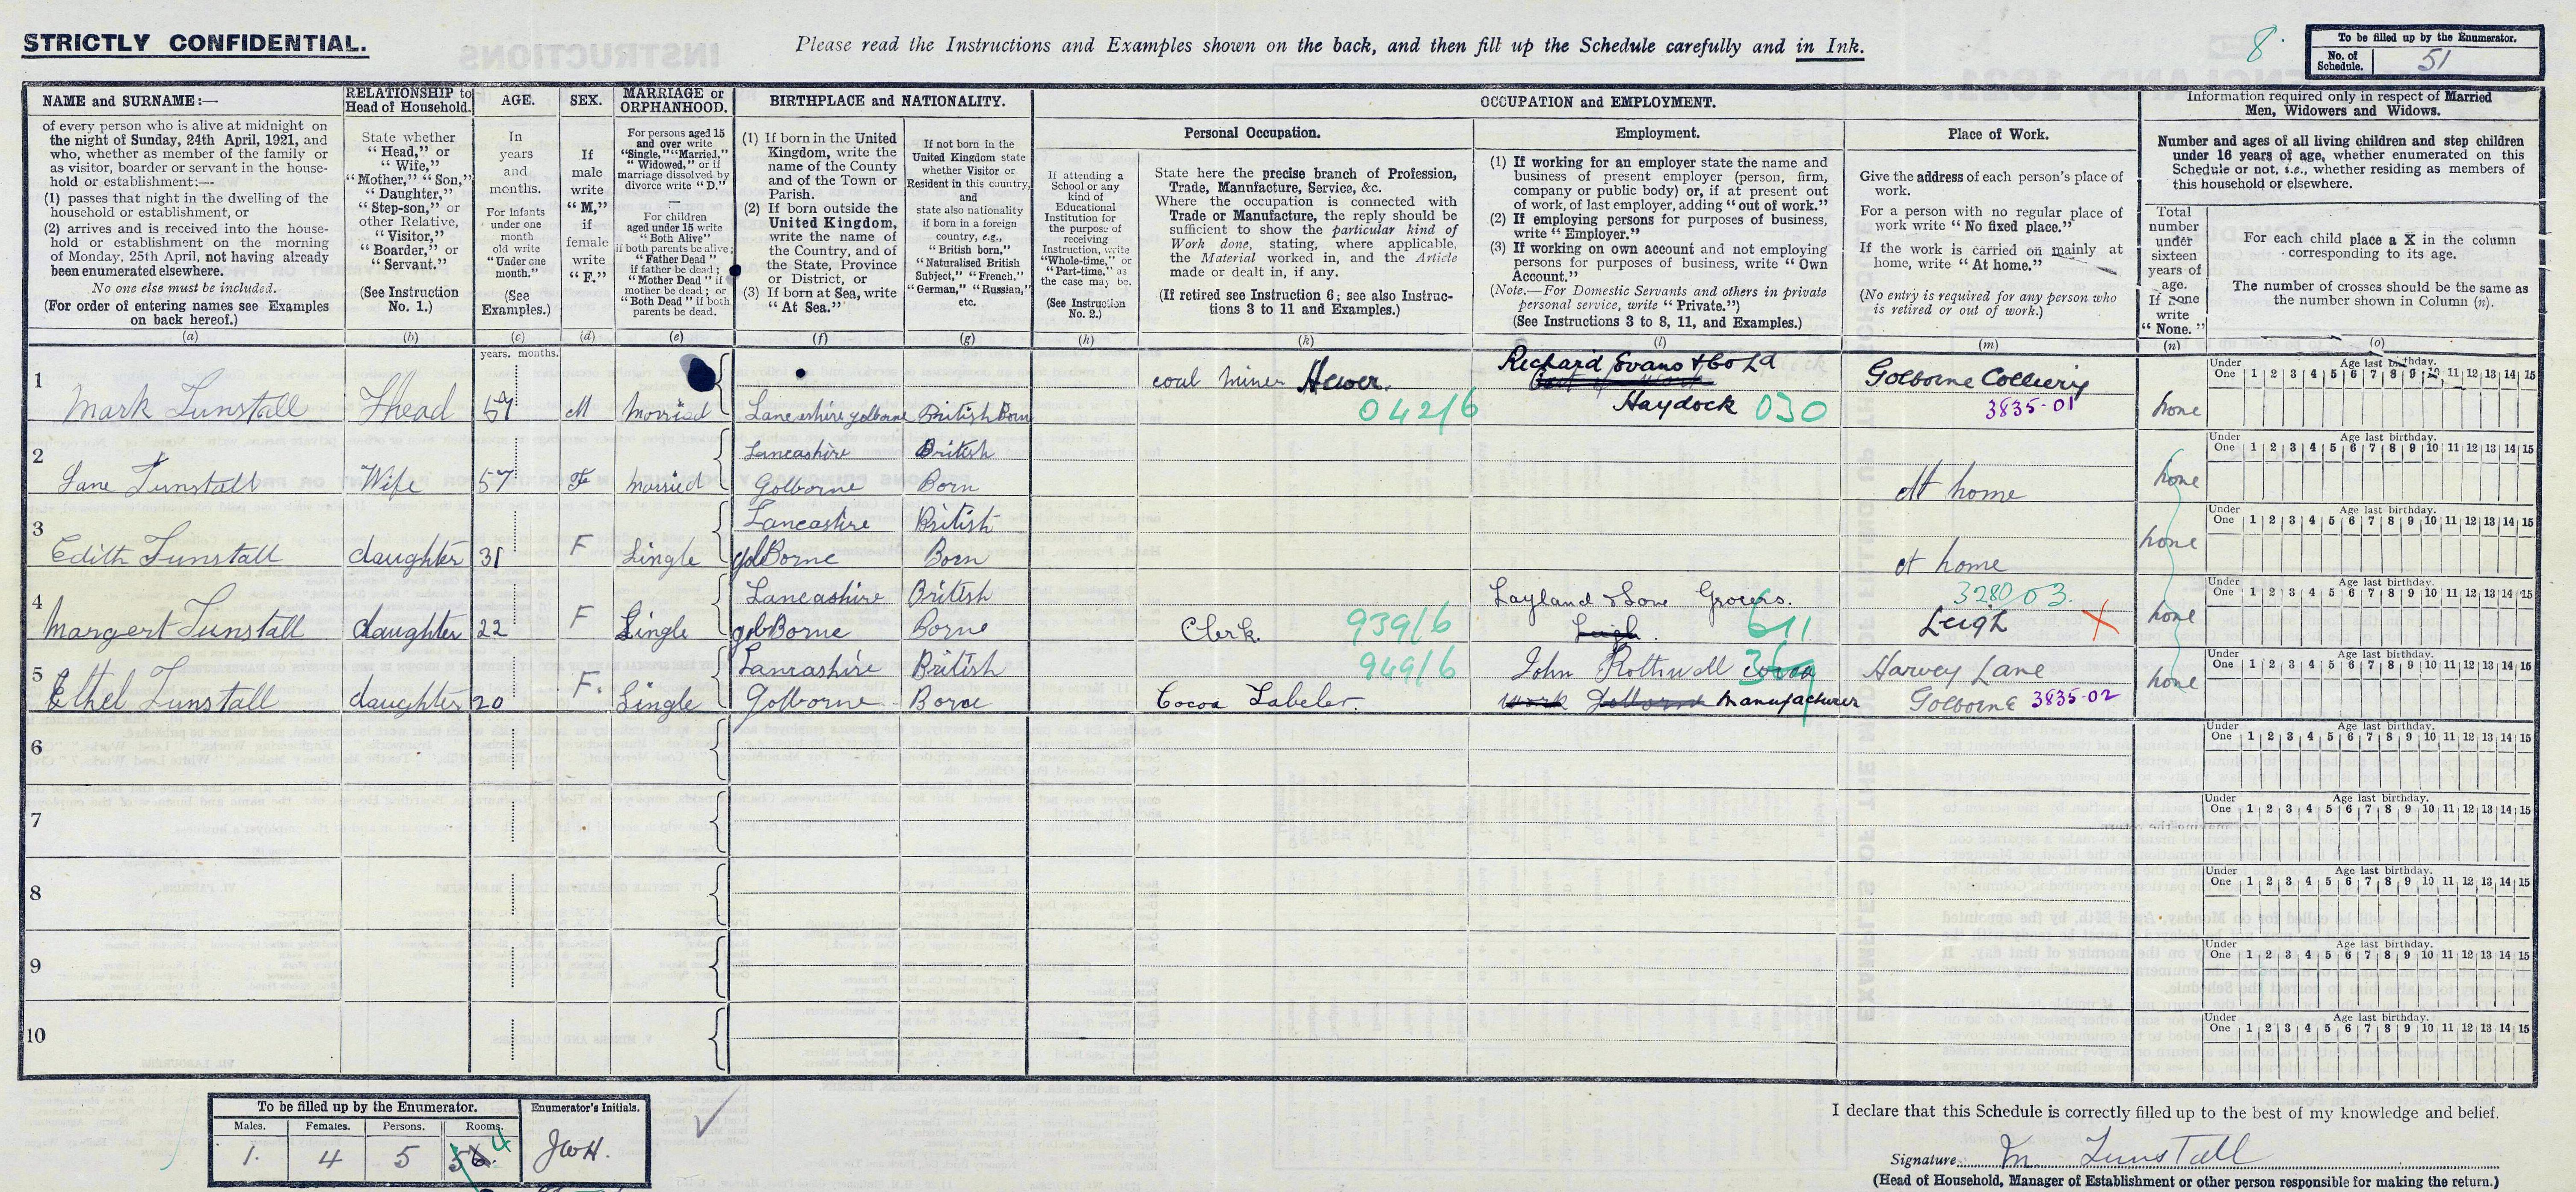 STRICTLY CONFIDENTIAL.
Please read the Instructions and Examples shown on the back, and then fill up the Schedule carefully and in Ink.
8.
To be filled up by the Enumerator.
No. of Schedule. 51
NAME and SURNAME:—
of every person who is alive at midnight on
the night of Sunday, 24th April, 1921, and
who, whether as member of the family or
as visitor, boarder or servant in the house-
hold or establishment:—
(1) passes that night in the dwelling of the
household or establishment, or
(2) arrives and is received into the house-
hold or establishment on the morning
of Monday, 25th April, not having already
been enumerated elsewhere.
No one else must be included.
(For order of entering names see Examples
on back hereof.)
(a)
RELATIONSHIP to
Head of Household.
State whether
"Head," or
"Wife,"
"Mother," "Son,"
"Daughter,"
"Step-son," or
other Relative,
"Visitor,"
"Boarder," or
"Servant."
(See Instruction
No. 1.)
(b)
AGE.
In
years
and
months.
For infants
under one
month
old write
"Under one
month."
(See
Examples.)
(c)
SEX.
If
male
write
"M,"
if
female
write
"F."
(d)
MARRIAGE or
ORPHANHOOD.
For persons aged 15
and over write
"Single," "Married,"
"Widowed," or if
marriage dissolved by
divorce write "D."
—
For children
aged under 15 write
"Both Alive"
if both parents be alive;
"Father Dead"
if father be dead;
"Mother Dead" if
mother be dead; or
"Both Dead" if both
parents be dead.
(e)
BIRTHPLACE and NATIONALITY.
(1) If born in the United
Kingdom, write the
name of the County
and of the Town or
Parish.
(2) If born outside the
United Kingdom,
write the name of
the Country, and of
the State, Province
or District, or
(3) If born at Sea, write
"At Sea."
(f)
If not born in the
United Kingdom state
whether Visitor or
Resident in this country,
and
state also nationality
if born in a foreign
country, e.g.,
"British born,"
"Naturalised British
Subject," "French,"
"German," "Russian,"
etc.
(g)
OCCUPATION and EMPLOYMENT.
Personal Occupation.
If attending a
School or any
kind of
Educational
Institution for
the purpose of
receiving
Instruction, write
"Whole-time," or
"Part-time," as
the case may be.
(See Instruction
No. 2.)
(h)
State here the precise branch of Profession,
Trade, Manufacture, Service, &c.
Where the occupation is connected with
Trade or Manufacture, the reply should be
sufficient to show the particular kind of
Work done, stating, where applicable,
the Material worked in, and the Article
made or dealt in, if any.
(If retired see Instruction 6; see also Instruc-
tions 3 to 11 and Examples.)
(k)
Employment.
(1) If working for an employer state the name and
business of present employer (person, firm,
company or public body) or, if at present out
of work, of last employer, adding "out of work."
(2) If employing persons for purposes of business,
write "Employer."
(3) If working on own account and not employing
persons for purposes of business, write "Own
Account."
(Note.—For Domestic Servants and others in private
personal service, write "Private.")
(See Instructions 3 to 8, 11, and Examples.)
(l)
Place of Work.
Give the address of each person's place of
work.
For a person with no regular place of
work write "No fixed place."
If the work is carried on mainly at
home, write "At home."
(No entry is required for any person who
is retired or out of work.)
(m)
Information required only in respect of Married
Men, Widowers and Widows.
Number and ages of all living children and step children
under 16 years of age, whether enumerated on this
Schedule or not, i.e., whether residing as members of
this household or elsewhere.
Total
number
under
sixteen
years of
age.
If none
write
"None."
(n)
For each child place a X in the column
corresponding to its age.
The number of crosses should be the same as
the number shown in Column (n).
(o)
years. months.
1 Mark Tunstall Head M Married Lancashire golborne British Born coal miner Hewer. 042/6 Richard Evans & Co Ld Haydock 030 Golborne Colliery 3835-01 none
Under One Age last birthday. 1 2 3 4 5 6 7 8 9 10 11 12 13 14 15
2 Jane Tunstall Wife 57 F Married Lancashire Golborne British Born At home none
Under One Age last birthday. 1 2 3 4 5 6 7 8 9 10 11 12 13 14 15
3 Edith Tunstall daughter 31 F Single Lancashire golBorne British Born at home none
Under One Age last birthday. 1 2 3 4 5 6 7 8 9 10 11 12 13 14 15
4 Margert Tunstall daughter 22 F Single Lancashire golBorne British Borne Clerk. 939/6 Layland & Sons Grocers. Leigh. 611 3280/03. Leigh X none
Under One Age last birthday. 1 2 3 4 5 6 7 8 9 10 11 12 13 14 15
5 Ethel Tunstall daughter 20 F. Single Lancashire Golborne British Borne 949/6 Cocoa Labeler. John Rothwell cocoa work Golborne manufacturer Harvey Lane Golborne 3835-02 none
Under One Age last birthday. 1 2 3 4 5 6 7 8 9 10 11 12 13 14 15
6
Under One Age last birthday. 1 2 3 4 5 6 7 8 9 10 11 12 13 14 15
7
Under One Age last birthday. 1 2 3 4 5 6 7 8 9 10 11 12 13 14 15
8
Under One Age last birthday. 1 2 3 4 5 6 7 8 9 10 11 12 13 14 15
9
Under One Age last birthday. 1 2 3 4 5 6 7 8 9 10 11 12 13 14 15
10
Under One Age last birthday. 1 2 3 4 5 6 7 8 9 10 11 12 13 14 15
To be filled up by the Enumerator.
Males. Females. Persons. Rooms.
1. 4 5 4
Enumerator's Initials.
JWH.
I declare that this Schedule is correctly filled up to the best of my knowledge and belief.
Signature M Tunstall
(Head of Household, Manager of Establishment or other person responsible for making the return.)